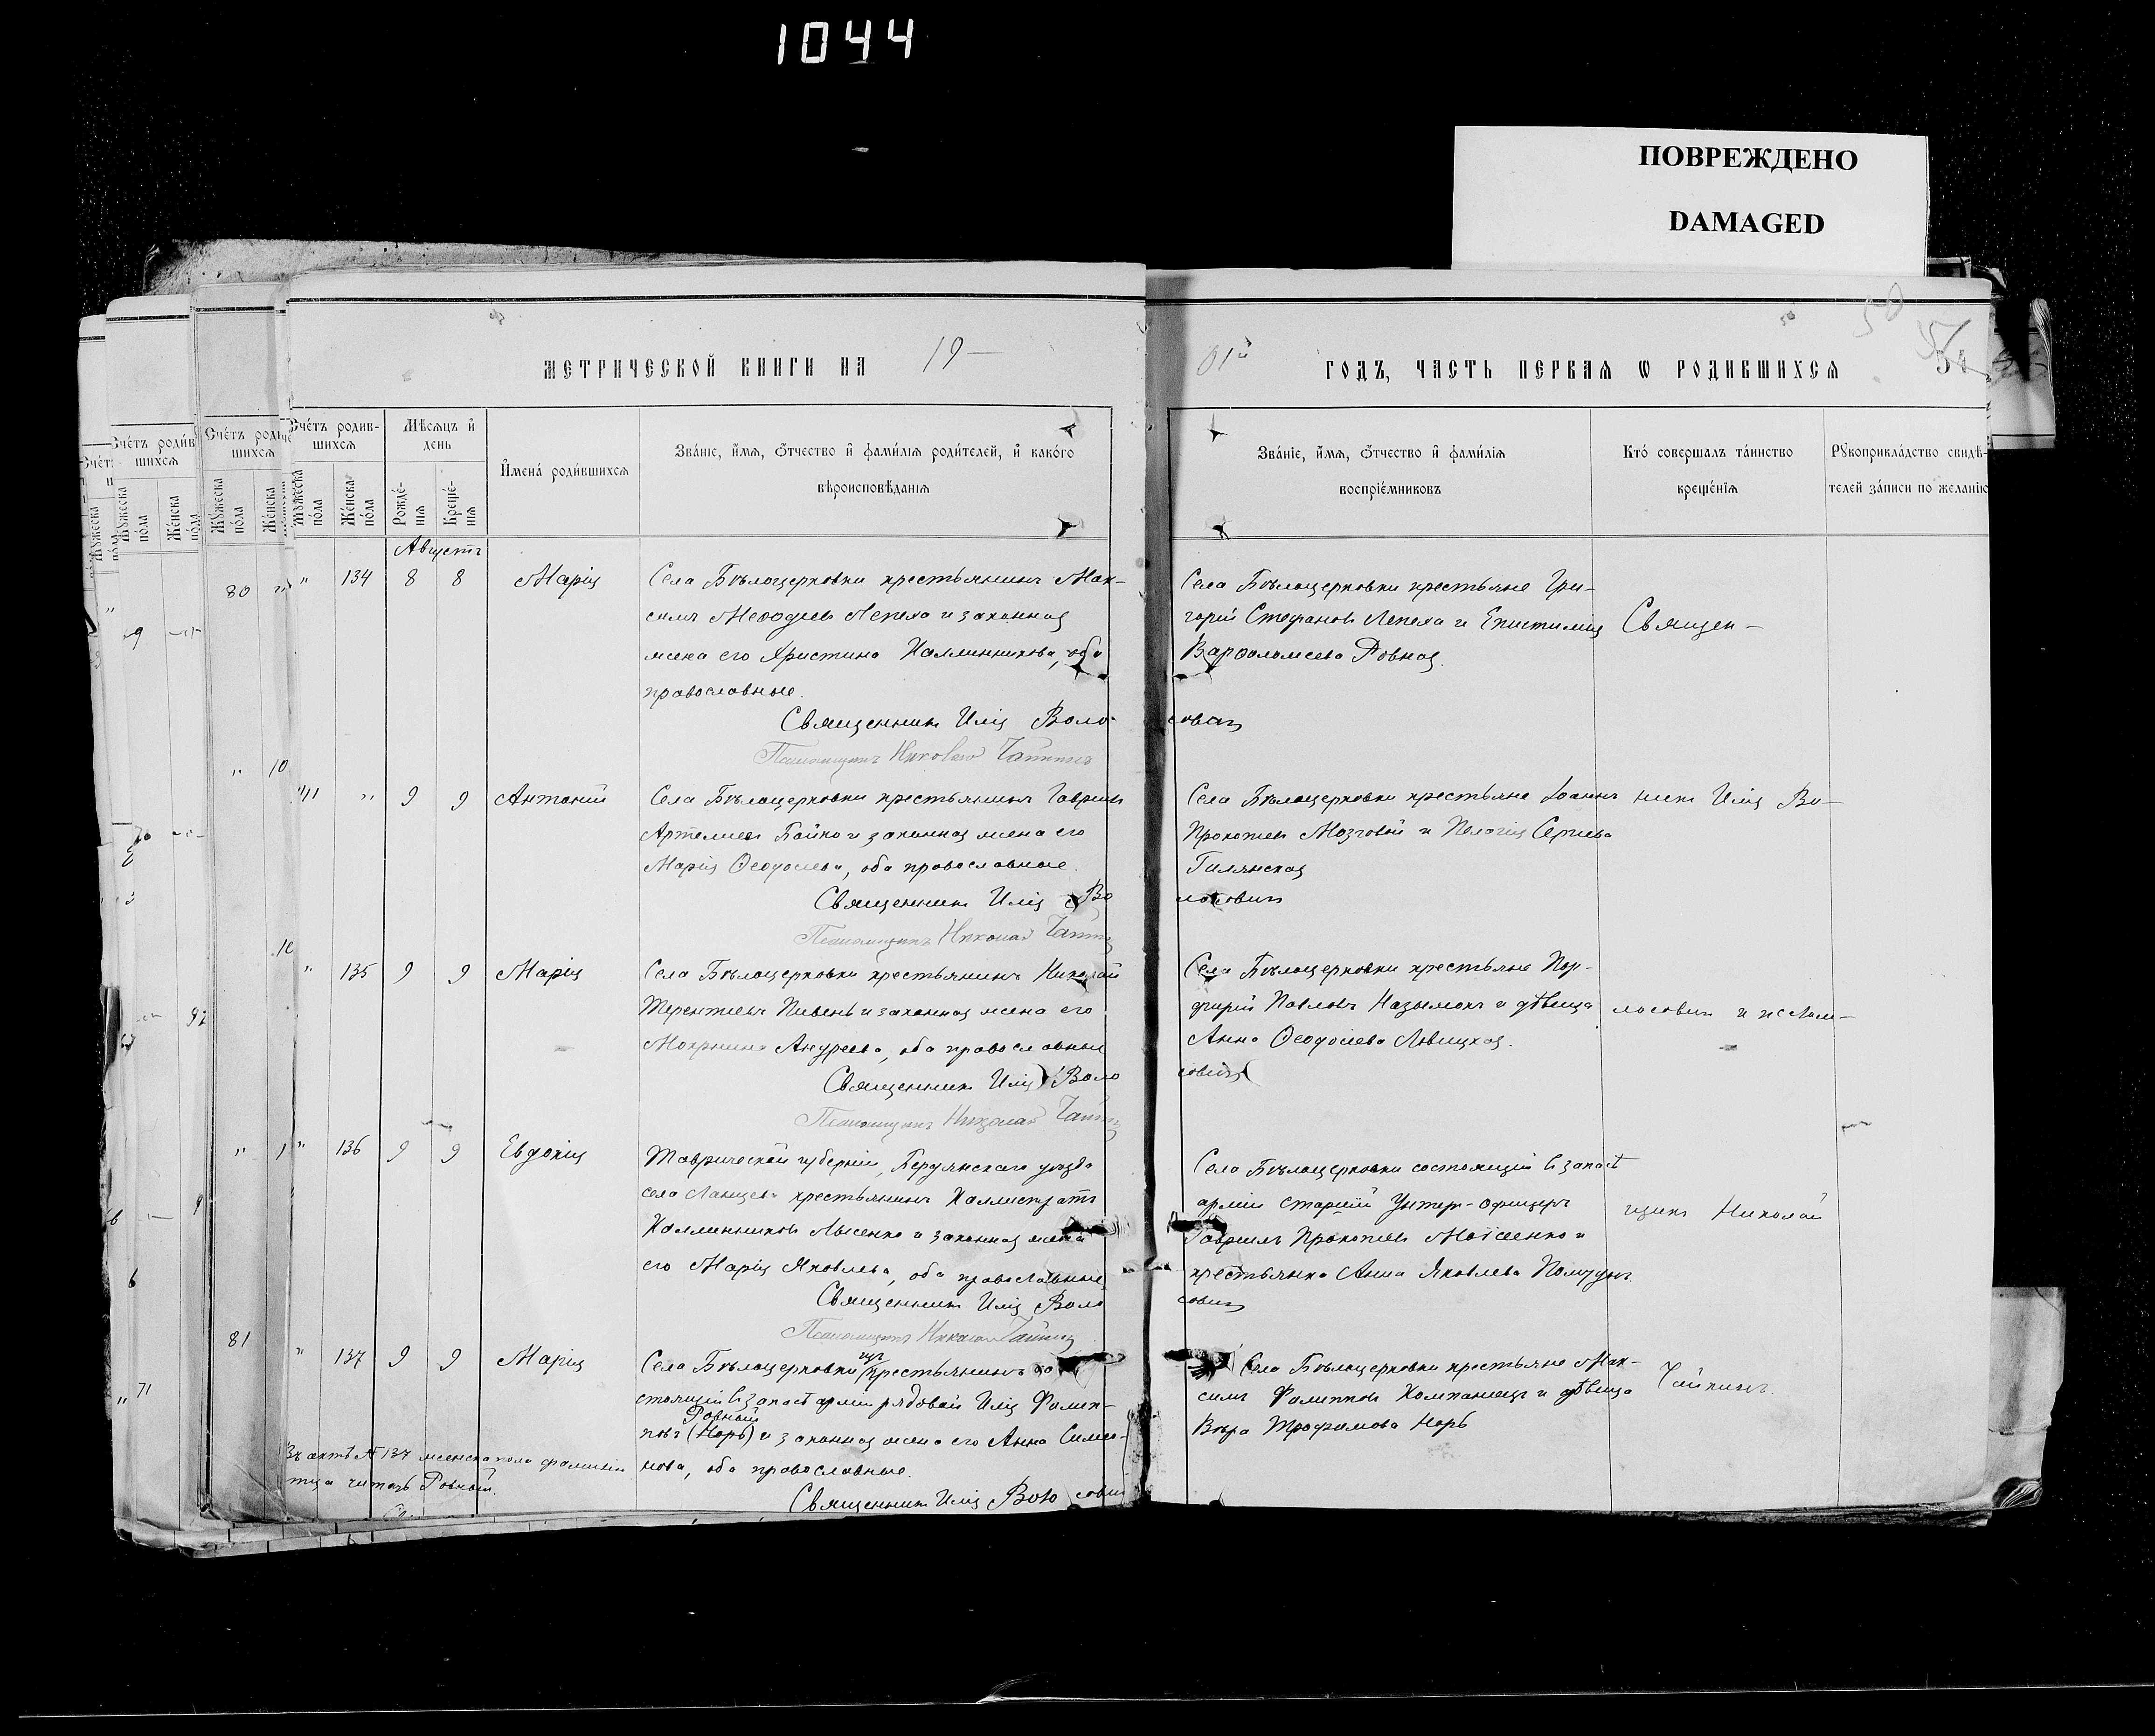 1044
ПОВРЕЖДЕНО
DAMAGED
МЕТРИЧЕСКОЙ КНИГИ НА 19—
01й ГОДЪ, ЧАСТЬ ПЕРВАЯ Ѡ РОДИВШИХСЯ
Счетъ родившихся
Мужеска пола
Женска пола
Мѣсяцъ и день
Рожденія
Крещенія
Имена родившихся
Званіе, имя, отчество и фамилія родителей, и какого
вѣроисповѣданія
Званіе, имя, отчество и фамилія
воспріемниковъ
Кто совершалъ таинство
крещенія
Рукоприкладство свидѣ-
телей записи по желанію
Августъ
" 134 8 8 Марія
Села Бѣлоцерковки крестьянинъ Мак-
симъ Меѳодіевъ Лепеха и законная
жена его Христина Каллиникова, оба
православные.
Священникъ Илія Воло-
совичъ
Псаломщикъ Николай Чайкинъ
Села Бѣлоцерковки крестьяне Гри-
горій Стефановъ Лепеха и Епистимія
Варѳоломеева Ровная.
Священ-
111 " 9 9 Антоній
Села Бѣлоцерковки крестьянинъ Гавріилъ
Артеміевъ Бойко и законная жена его
Марія Ѳеодосіева, оба православные.
Священникъ Илія Во
лосовичъ
Псаломщикъ Николай
Села Бѣлоцерковки крестьяне Іоаннъ
Прокопіевъ Мозговой и Пелагія Сергіева
Гилянская
никъ Илія Во-
" 135 9 9 Марія
Села Бѣлоцерковки крестьянинъ Николай
Терентіевъ Пивень и законная жена его
Андреева, оба православные
Священникъ Илія Воло
совичъ
Псаломщикъ Николай
Села Бѣлоцерковки крестьяне Пор-
фирій Павловъ Назымокъ и дѣвица
Анна Ѳеодосіева Левицкая.
лосовичъ и псалом-
" 136 9 9 Евдокія
Таврической губерніи, Бердянскаго уѣзда
села крестьянинъ Каллистратъ
Каллиниковъ Лысенко и законная жена
его Марія Яковлева, оба православные
Священникъ Илія Воло
совичъ
Псаломщикъ Николай
Села Бѣлоцерковки состоящій въ запасѣ
арміи старшій Унтеръ-офицеръ
Гавріилъ Прокопіевъ Моісеенко и
крестьянка Анна Яковлева
щикъ Николай
" 137 9 9 Марія
Села Бѣлоцерковки крестьянинъ со
стоящій въ запасѣ арміи рядовой Илія Филип-
Ровный
повъ (Норь) и законная жена его Анна Симео-
нова, оба православные.
Священникъ Илія Воло совичъ
Села Бѣлоцерковки крестьяне Мак-
симъ Филиповъ Компаніецъ и дѣвица
Вѣра Трофимова Норь
Чайкинъ.
Въ актѣ № 137 женска пола фамилію
отца читать Ровный.